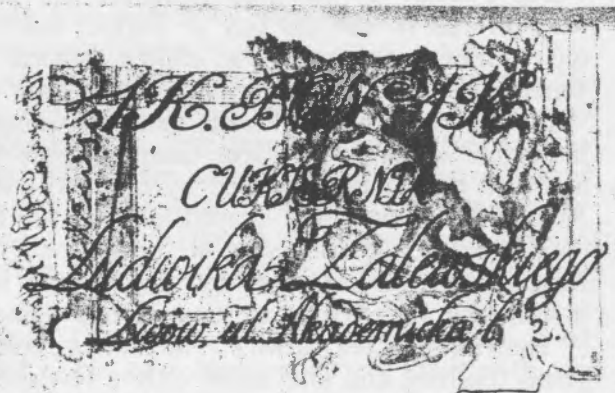 1K. BON 1K.
CUKIERNIA
Ludwika Zalewskiego
Lwów, ul. Akademicka, l. 2.